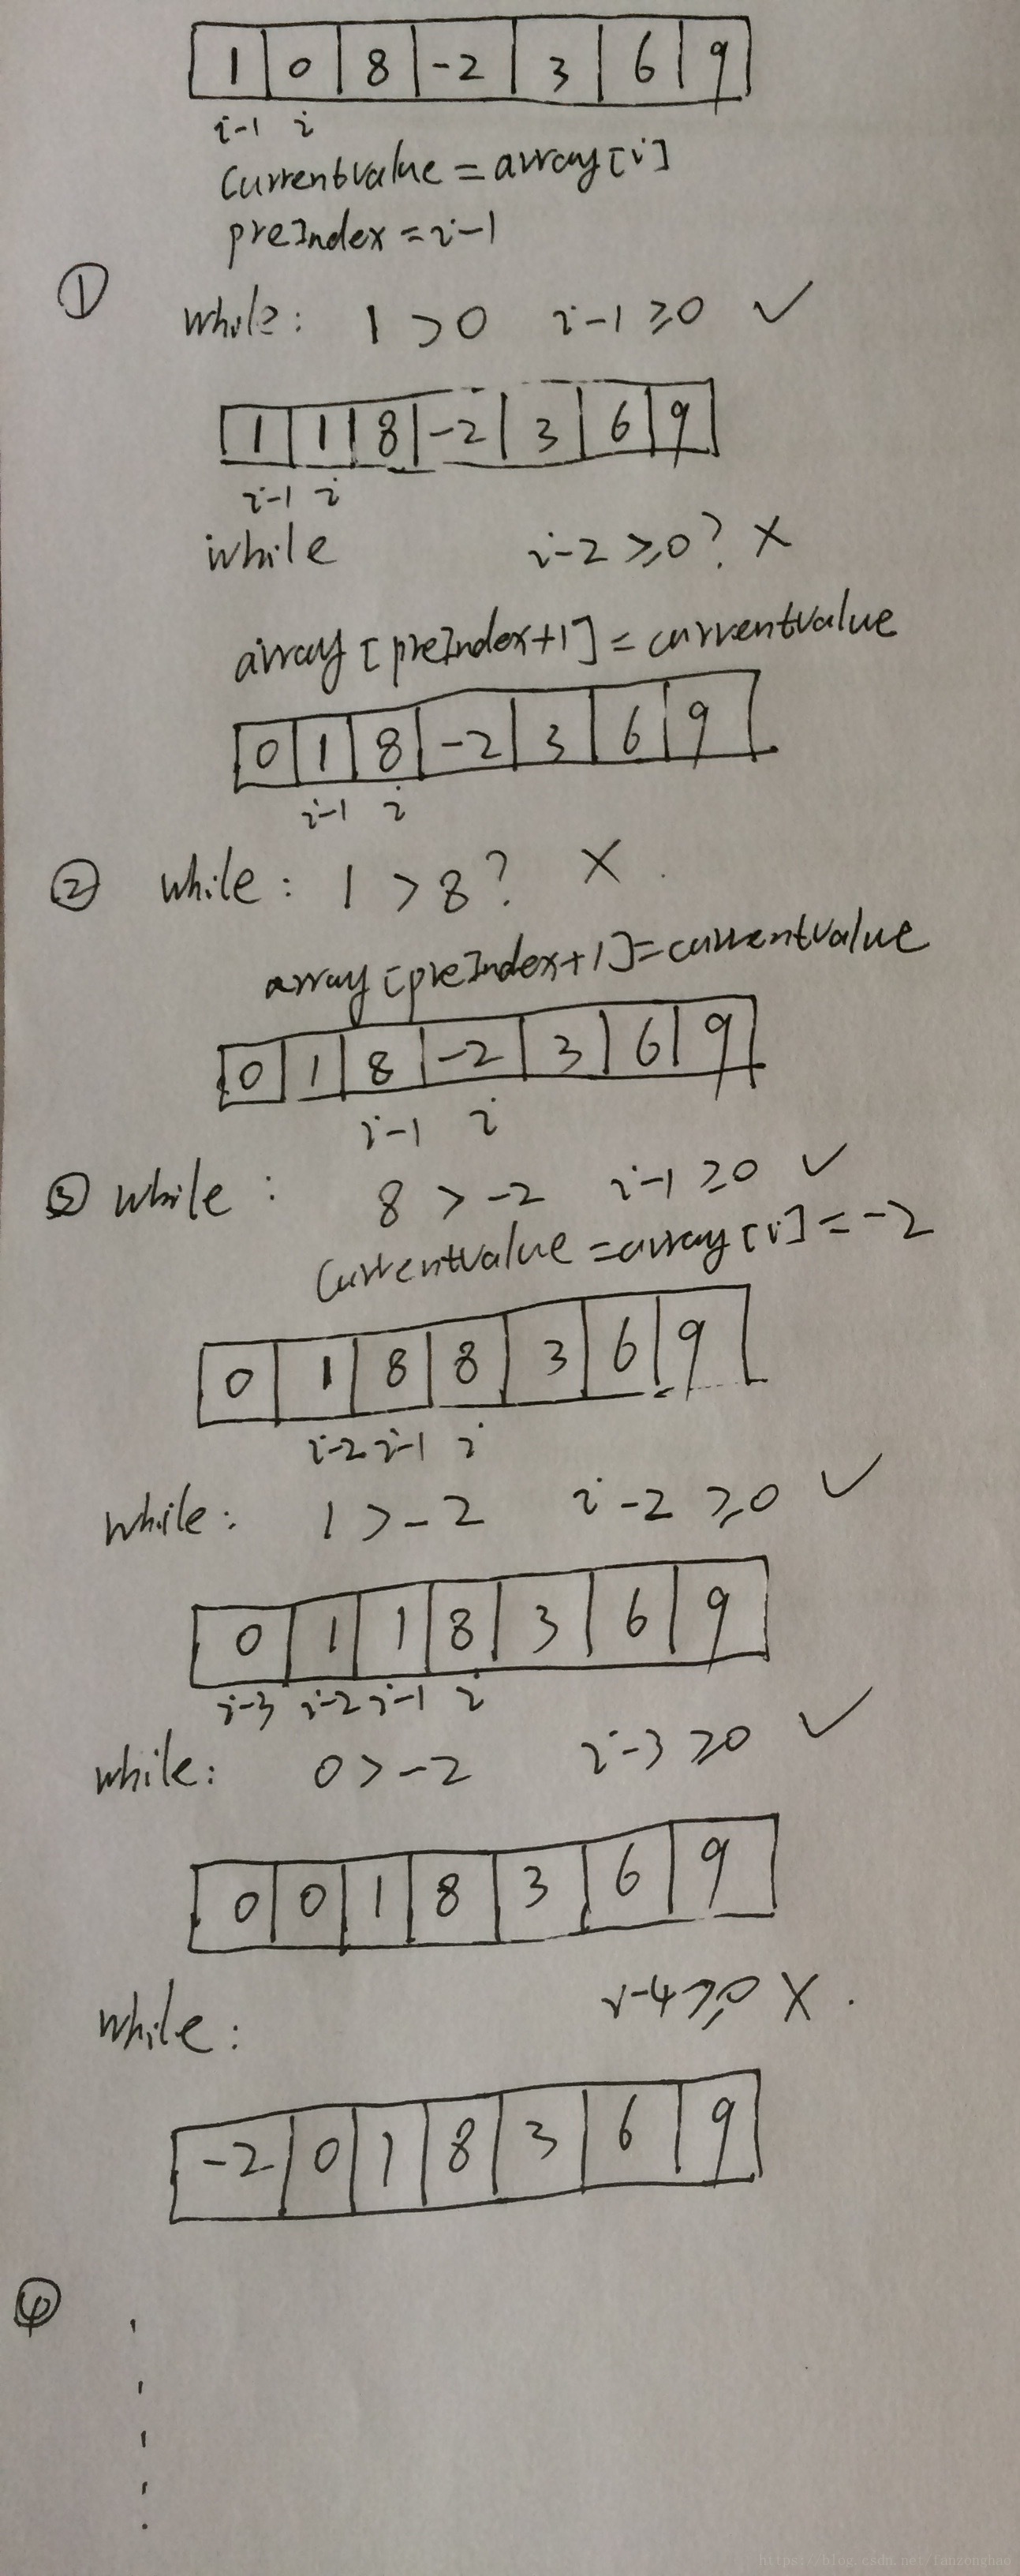 1 0 8 -2 3 6 9
i-1 i
currentvalue = array[i]
preIndex = i-1
① while: 1 > 0 i-1 ≥ 0 ✓
1 1 8 -2 3 6 9
i-1 i
while i-2 ≥ 0? ×
array[preIndex+1] = currentvalue
0 1 8 -2 3 6 9
i-1 i
② while: 1 > 8? ×
array[preIndex+1]=currentvalue
0 1 8 -2 3 6 9
i-1 i
③ while: 8 > -2 i-1 ≥ 0 ✓
currentvalue = array[i] = -2
0 1 8 8 3 6 9
i-2 i-1 i
while: 1 > -2 i-2 ≥ 0 ✓
0 1 1 8 3 6 9
i-3 i-2 i-1 i
while: 0 > -2 i-3 ≥ 0 ✓
0 0 1 8 3 6 9
while: i-4 ≥ 0 ×
-2 0 1 8 3 6 9
④
https://blog.csdn.net/fanzonghao